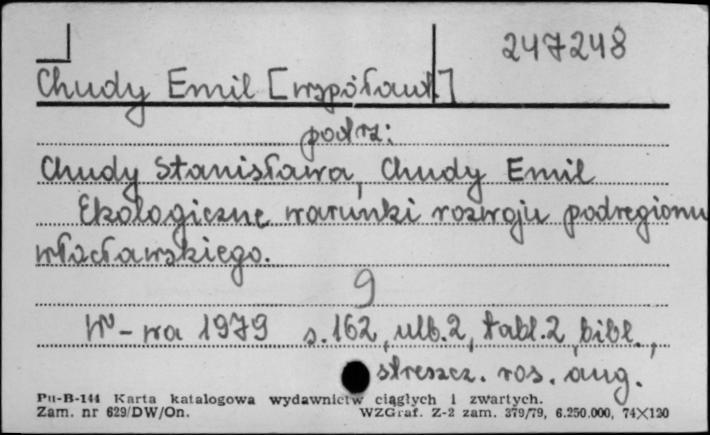 247248
Chudy Emil [współaut.]
podrz:
Chudy Stanisława, Chudy Emil
Ekologiczne warunki rozwoju podregionu
włocławskiego.
9
W-wa 1979 s. 162, ulb. 2, tabl. 2, bibl.,
streszcz. ros. ang.
Pu-B-144 Karta katalogowa wydawnictw ciągłych i zwartych.
Zam. nr 629/DW/On. WZGraf. Z-2 zam. 379/79, 6.250.000, 74×120